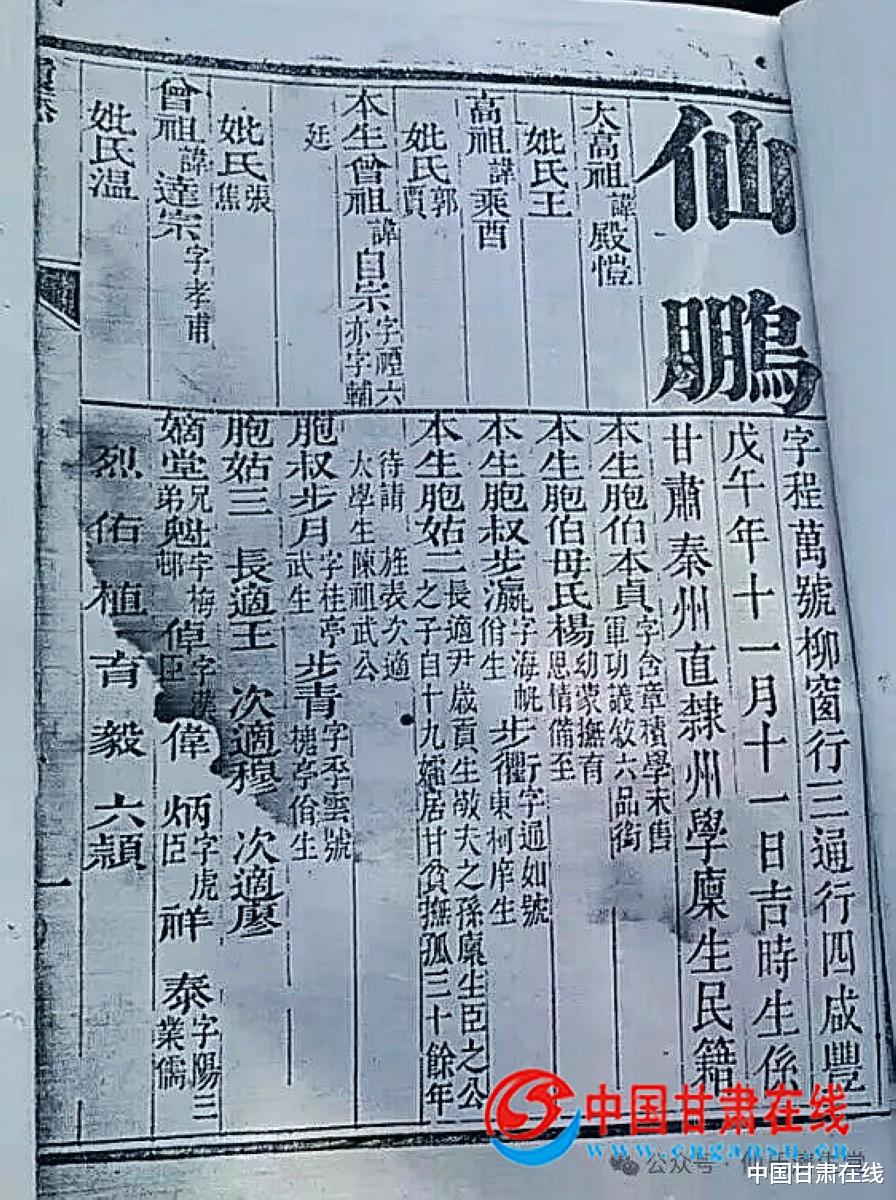 仙鵬
太高祖諱殿愷
妣氏王
高祖諱乘酉
妣氏郭賈
本生曾祖諱自宗字禋六亦字輔
廷
妣氏張焦
曾祖諱達宗字孝甫
妣氏溫
字程萬號柳窗行三通行四咸豐
戊午年十一月十一日吉時生係
甘肅秦州直隸州學廩生民籍
本生胞伯本貞字含章積學未售軍功議敘六品銜
本生胞伯母氏楊幼蒙撫育恩情備至
本生胞叔步瀛字海帆佾生步衢行字通如號東柯庠生
本生胞姑二長適尹歲貢生敬夫之孫廩生臣之公之子自十九孀居甘貧撫孤三十餘年
待請旌表次適太學生陳祖武公
胞叔步月字桂亭武生步青字乎雲號槐亭佾生
胞姑三長適王次適穆次適廖
嫡堂兄弟魁字梅邨倬字臣偉炳字虎臣祥泰字陽三業儒
烈佑植育毅六頴
一
中国甘肃在线
www.cngansu.cn
公众号·仙
中国甘肃在线